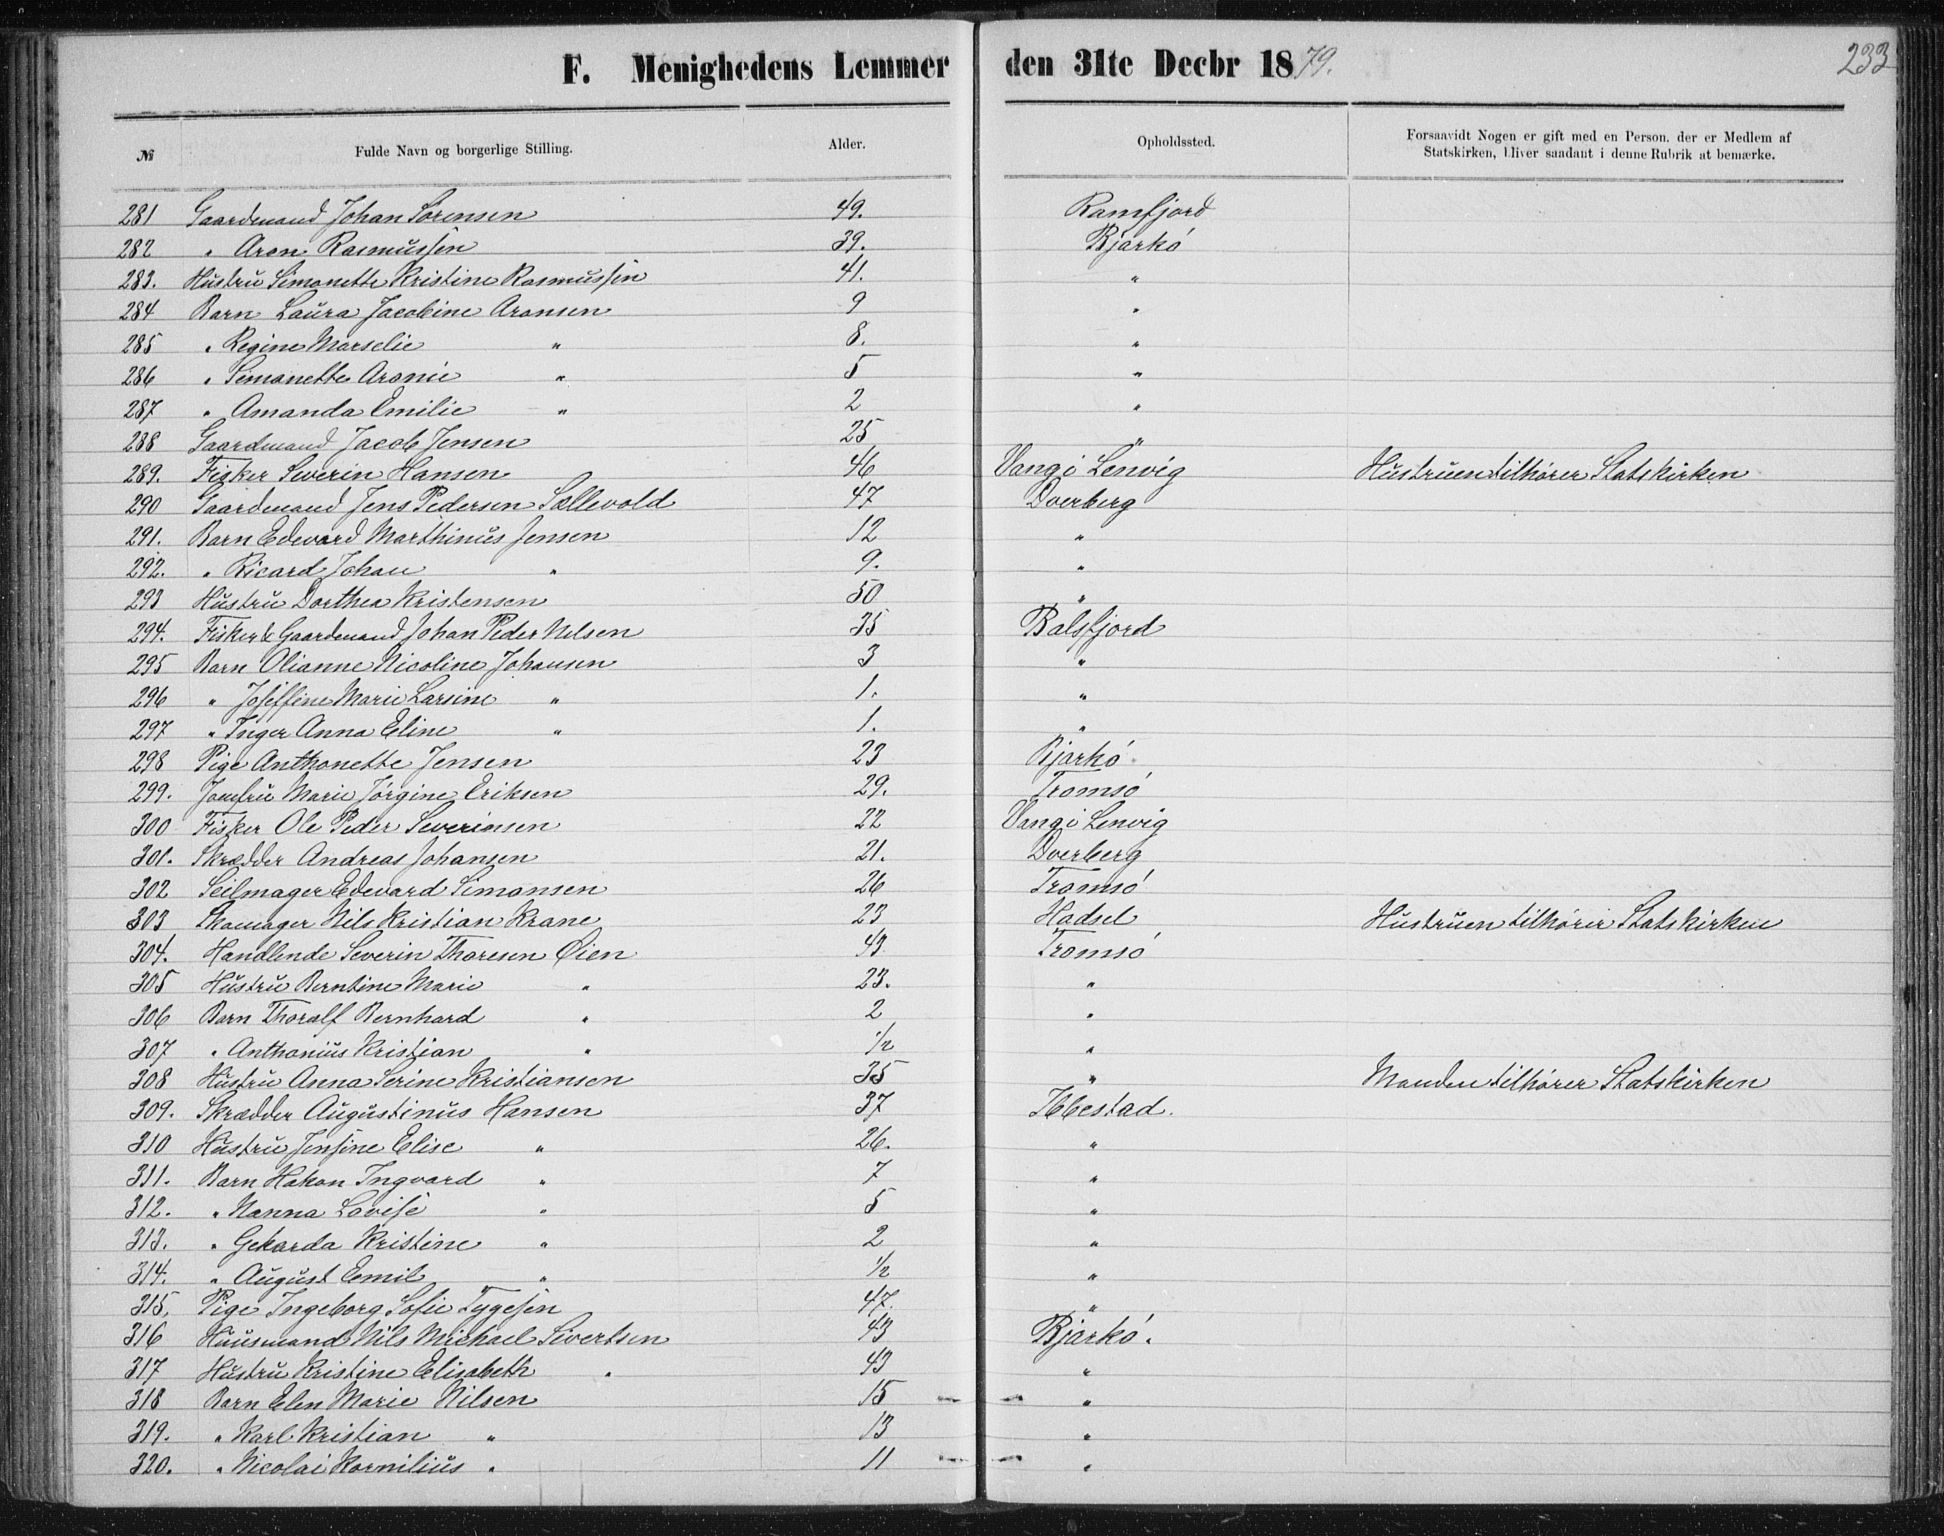 F. Menighedens Lemmer den 31te Decbr 1879. 233
№ Fulde Navn og borgerlige Stilling. Alder. Opholdssted. Forsaavidt Nogen er gift med en Person, der er Medlem af Statskirken, bliver saadant i denne Rubrik at bemærke.
281 Gaardmand Johan Sørensen 49. Ramfjord
282 " Aron Rasmussen 39. Bjarkö
283. Hustru Simonette Kristine Rasmussen 41. "
284 Barn Laura Jacobine Aronsen 9 "
285 " Regine Marselie " 8. "
286 " Simonette Aronie " 5 "
287 " Amanda Emilie " 2 "
288 Gaardmand Jacob Jensen 25 "
289. Fisker Severin Hansen 46 Vang i Lenvig Hustruen tilhører Statskirken
290 Gaardmand Jens Pedersen Sællevold 47 Dverberg
291. Barn Edevard Marthinus Jensen 12 "
292. " Ricard Johan " 9. "
293 Hustru Dorthea Kristensen 50 "
294. Fisker & Gaardmand Johan Peder Nilsen 35 Balsfjord
295 Barn Olianne Nicoline Johansen 3 "
296 " Joseffine Marie Larsine " 1. "
297 " Inger Anna Eline " 1. "
298 Pige Anthonette Jensen 23 Bjarkö
299. Jomfru Marie Jörgine Eriksen 29. Tromsö
300 Fisker Ole Peder Severinsen 22 Vang i Lenvig
301. Skrædder Andreas Johansen 21. Dverberg
302 Seilmager Edevard Simonsen 26 Tromsö
303 Skomager Nils Kristian Krane 23 Hadsel Hustruen tilhører Statskirken
304. Handlende Severin Thoresen Øien 43 Tromsö
305 Hustru Berntine Marie " 23. "
306 Barn Thoralf Bernhard " 2 "
307 " Anthonius Kristian " 1/2 "
308 Hustru Anna Serine Kristiansen 35 " Manden tilhører Statskirken
309. Skrædder Augustinus Hansen 37 Ibbestad.
310 Hustru Jensine Elise " 26. "
311. Barn Hakon Ingvard " 7 "
312. " Nanna Lovise " 5 "
313. " Gekarda Kristine " 2 "
314. " August Emil " 1/2 "
315. Pige Ingeborg Sofie Tygesen 47. "
316 Huusmand Nils Michael Sivertsen 43 Bjarkö.
317 Hustru Kristine Elisabeth " 43 "
318 Barn Elen Marie Nilsen 15 "
319. " Karl Kristian " 13 "
320. " Nicolai Kornilius " 11 "